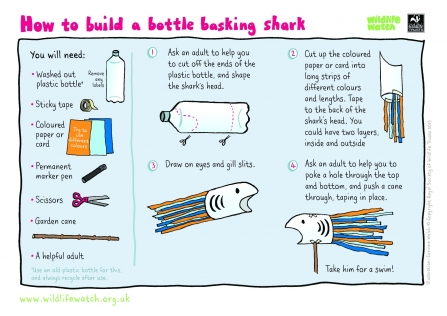 How to build a bottle basking shark
wildlife
watch
You will need:
• Washed out
plastic bottle*
Remove
any
labels
• Sticky tape
• Coloured
paper or
card
Try to
use
different
colours
• Permanent
marker pen
• Scissors
• Garden cane
• A helpful adult
*Use an old plastic bottle for this,
and always recycle after use.
1
Ask an adult to help you
to cut off the ends of the
plastic bottle, and shape
the shark's head.
2
Cut up the coloured
paper or card into
long strips of
different colours
and lengths. Tape
to the back of the
shark's head. You
could have two layers,
inside and outside
3
Draw on eyes and gill slits.
4
Ask an adult to help you to
poke a hole through the top
and bottom, and push a cane
through, taping in place.
Take him for a swim!
www.wildlifewatch.org.uk